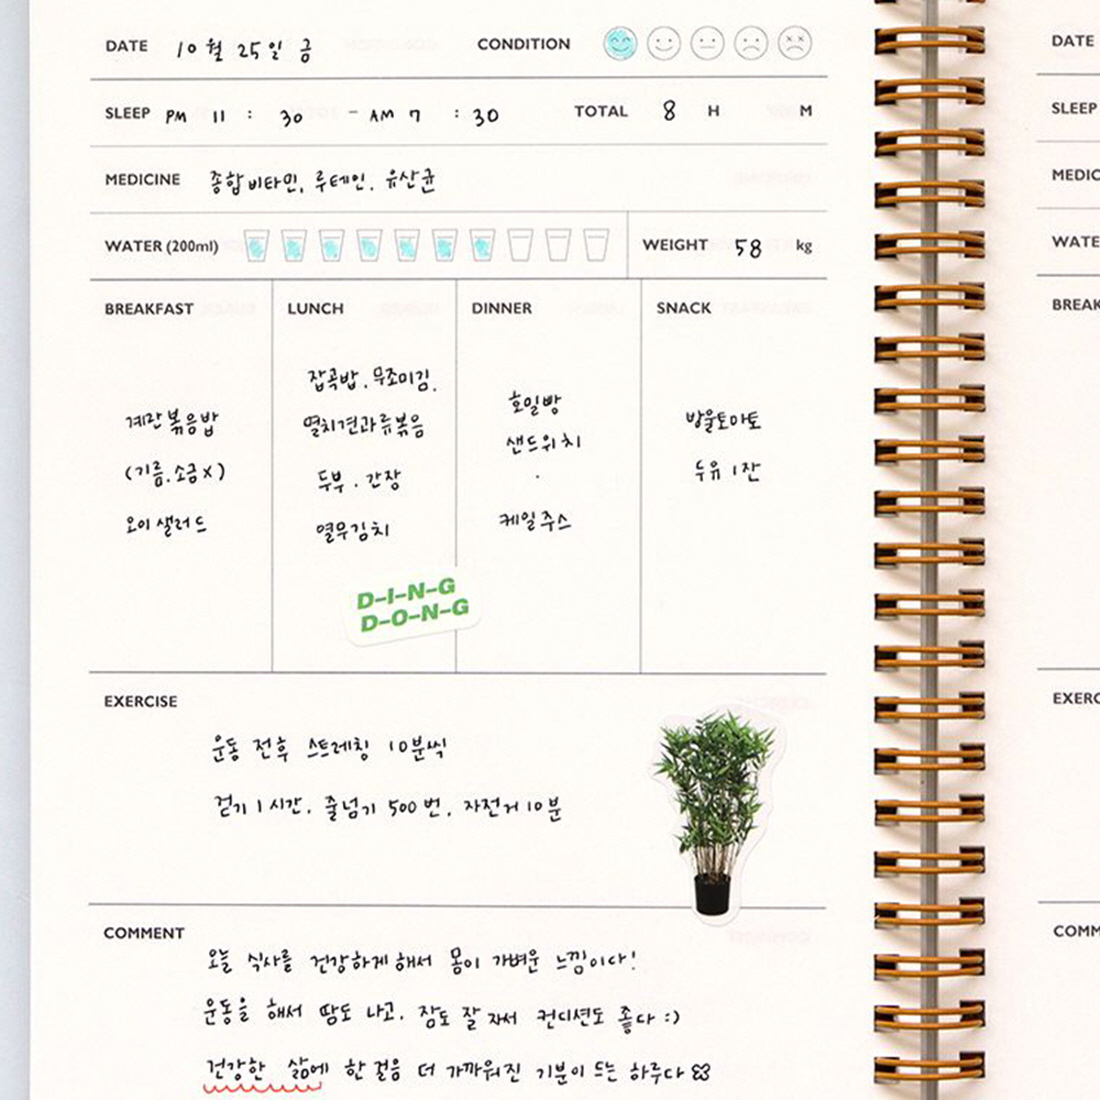 DATE 10월 25일 금 CONDITION
SLEEP PM 11 : 30 - AM 7 : 30 TOTAL 8 H M
MEDICINE 종합비타민, 루테인, 유산균
WATER (200ml) WEIGHT 58 kg
BREAKFAST
계란볶음밥
(기름.소금x)
오이샐러드
LUNCH
잡곡밥, 무조미김,
멸치견과류볶음
두부 . 간장
열무김치
DINNER
호밀빵
샌드위치
.
케일주스
SNACK
방울토마토
두유 1잔
D-I-N-G
D-O-N-G
EXERCISE
운동 전후 스트레칭 10분씩
걷기 1시간, 줄넘기 500번, 자전거 10분
COMMENT
오늘 식사를 건강하게해서 몸이 가벼운 느낌이다!
운동을 해서 땀도 나고, 잠도 잘 자서 컨디션도 좋다 :)
건강한 삶에 한걸음 더 가까워진 기분이 드는 하루다
DATE
SLEEP
MEDIC
WATE
BREAK
EXERC
COMM